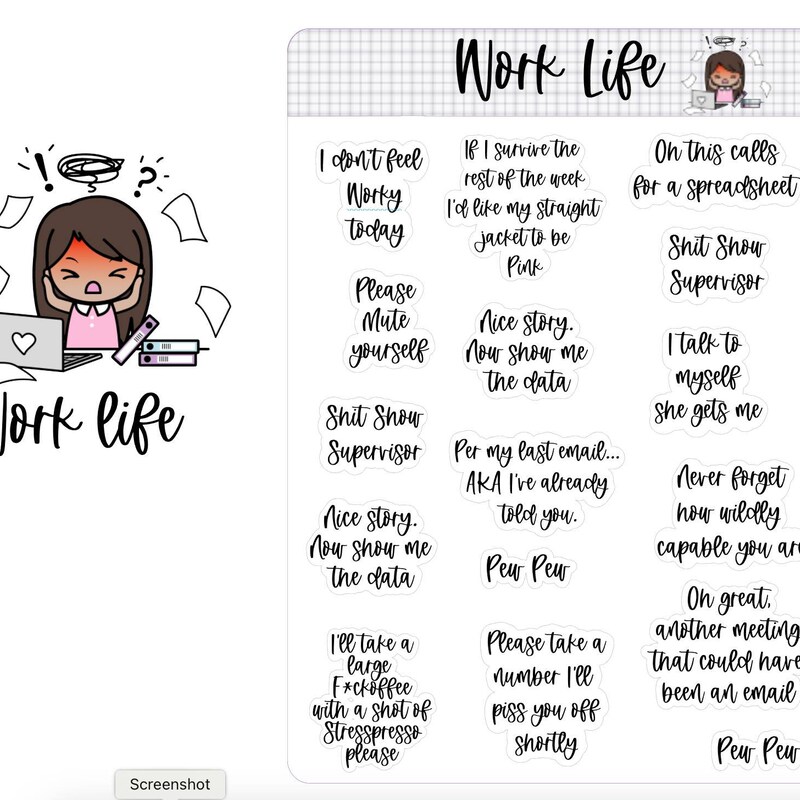 ! ?
Work life
Work Life
I don't feel
Worky
today
Please
Mute
yourself
Shit Show
Supervisor
Nice story.
Now show me
the data
I'll take a
large
F*ckoffee
with a shot of
Stresspresso
please
If I survive the
rest of the week
I'd like my straight
jacket to be
Pink
Nice story.
Now show me
the data
Per my last email...
AKA I've already
told you.
Pew Pew
Please take a
number I'll
piss you off
shortly
Oh this calls
for a spreadsheet
Shit Show
Supervisor
I talk to
myself
she gets me
Never forget
how wildly
capable you are
Oh great,
another meeting
that could have
been an email
Pew Pew
Screenshot